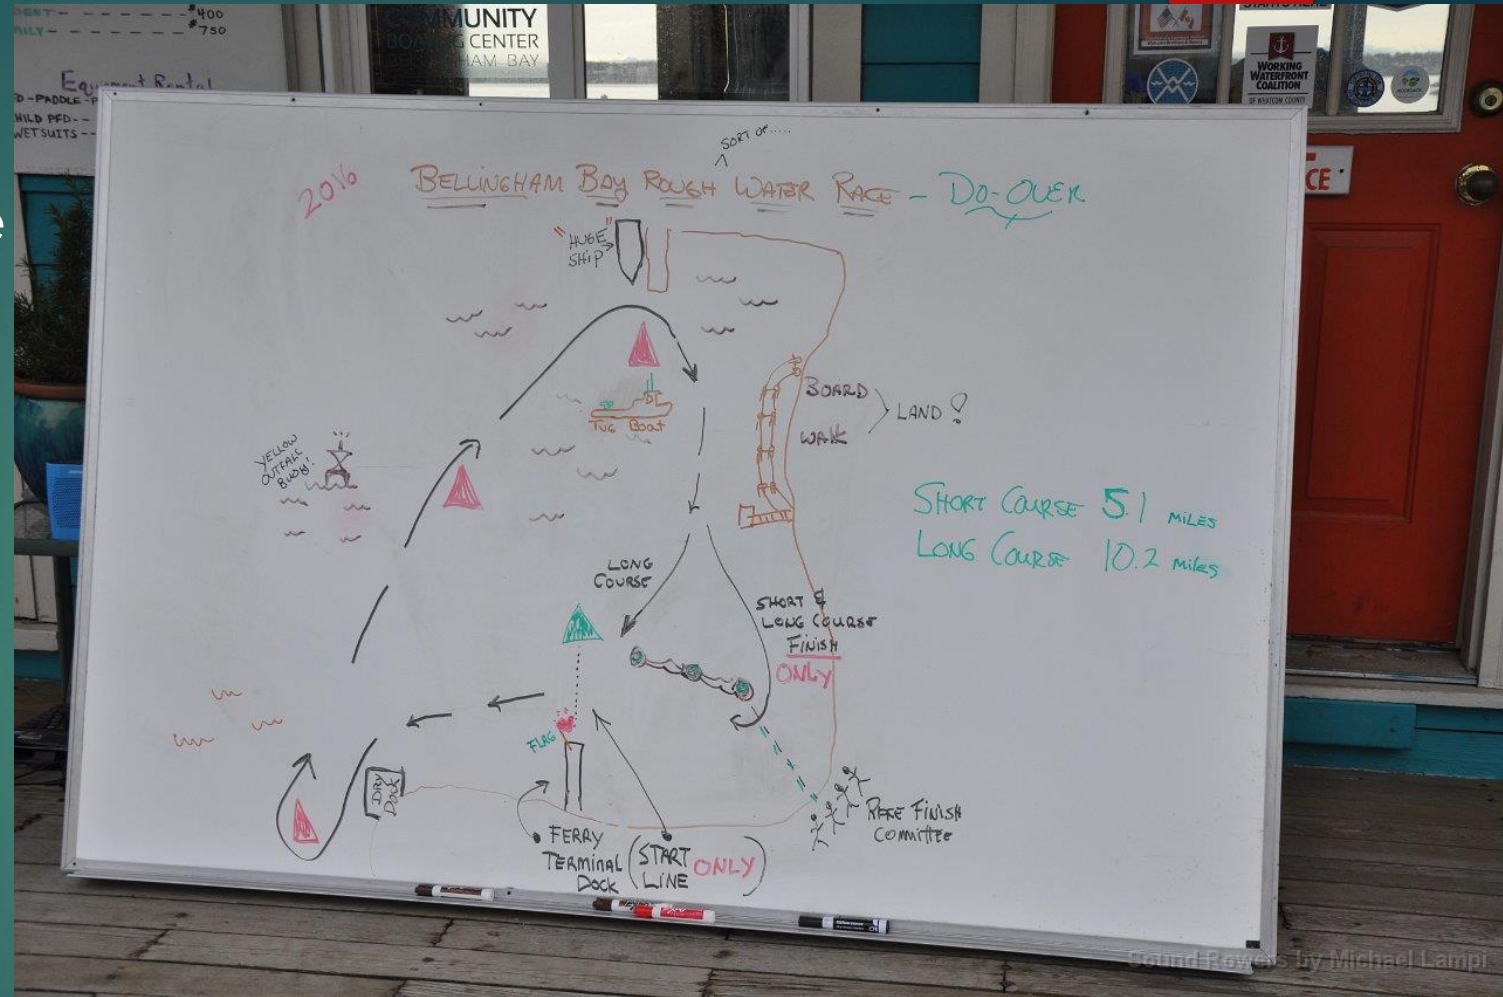 $400
$750
Equipment Rental
CHILD PFD--
WETSUITS--
COMMUNITY
BOATING CENTER
BELLINGHAM BAY
STARTS HERE
WORKING
WATERFRONT
COALITION
OF WHATCOM COUNTY
CE
SORT OF.....
2016
BELLINGHAM BAY ROUGH WATER RACE - DO-OVER
"HUGE"
SHIP
TUG BOAT
BOARD
WALK
LAND!
YELLOW
OUTFALL
BUOY!
SHORT COURSE 5.1 MILES
LONG COURSE 10.2 MILES
LONG
COURSE
SHORT &
LONG COURSE
FINISH
ONLY
FLAG
DRY
DOCK
FERRY
TERMINAL
DOCK
(START
LINE
ONLY)
RACE FINISH
COMMITTEE
Sound Rowers by Michael Lampi